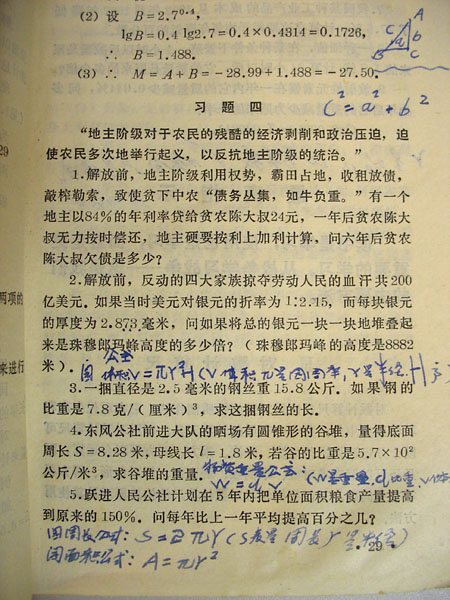 (2) 设 B=2.7^0.4,
lgB=0.4 lg2.7=0.4×0.4314=0.1726,
∴ B=1.488.
(3) ∴ M=A+B=-28.99+1.488=-27.50.
A
C
b
a
B
C
C²=a²+b²
习题四
“地主阶级对于农民的残酷的经济剥削和政治压迫，迫
使农民多次地举行起义，以反抗地主阶级的统治。”
1.解放前，地主阶级利用权势，霸田占地，收租放债，
敲榨勒索，致使贫下中农“债务丛集，如牛负重。”有一个
地主以84%的年利率贷给贫农陈大叔24元，一年后贫农陈大
叔无力按时偿还，地主硬要按利上加利计算，问六年后贫农
陈大叔欠债是多少？
2.解放前，反动的四大家族掠夺劳动人民的血汗共200
亿美元。如果当时美元对银元的折率为1:2.15，而每块银元
的厚度为2.873毫米，问如果将总的银元一块一块地堆叠起
来是珠穆郎玛峰高度的多少倍？（珠穆郎玛峰的高度是8882
米）.
公式
圆 体积V=πr²H (V体积 π是圆周率, r是半径. H
3.一捆直径是2.5毫米的钢丝重15.8公斤. 如果钢的
比重是7.8克/（厘米）³，求这捆钢丝的长.
4.东风公社前进大队的晒场有圆锥形的谷堆，量得底面
周长S=8.28米,母线长l=1.8米，若谷的比重是5.7×10²
公斤/米³，求谷堆的重量.
物资重量公式: (W是重量. d比重 V
W=d.V
5.跃进人民公社计划在5年内把单位面积粮食产量提高
到原来的150%。问每年比上一年平均提高百分之几？
圆周长公式: S=2πr (S表是周长 r是半径)
圆面积公式: A=πr²
·29·
29
两项的
来进行